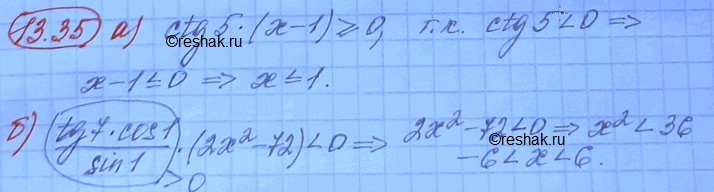 13.35 а) ctg 5 · (x-1) ≥ 0, т.к. ctg 5 < 0 ⇒
©reshak.ru
x-1 ≤ 0 ⇒ x ≤ 1.
б) (tg 7 · cos 1 / sin 1) · (2x² - 72) < 0 ⇒ 2x² - 72 < 0 ⇒ x² < 36
>0 -6 < x < 6.
©reshak.ru